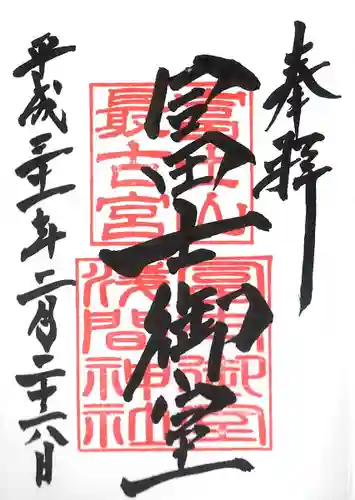 奉拝
冨士御室
富士山
最古宮
冨士御室
浅間神社
平成三十一年二月二十八日